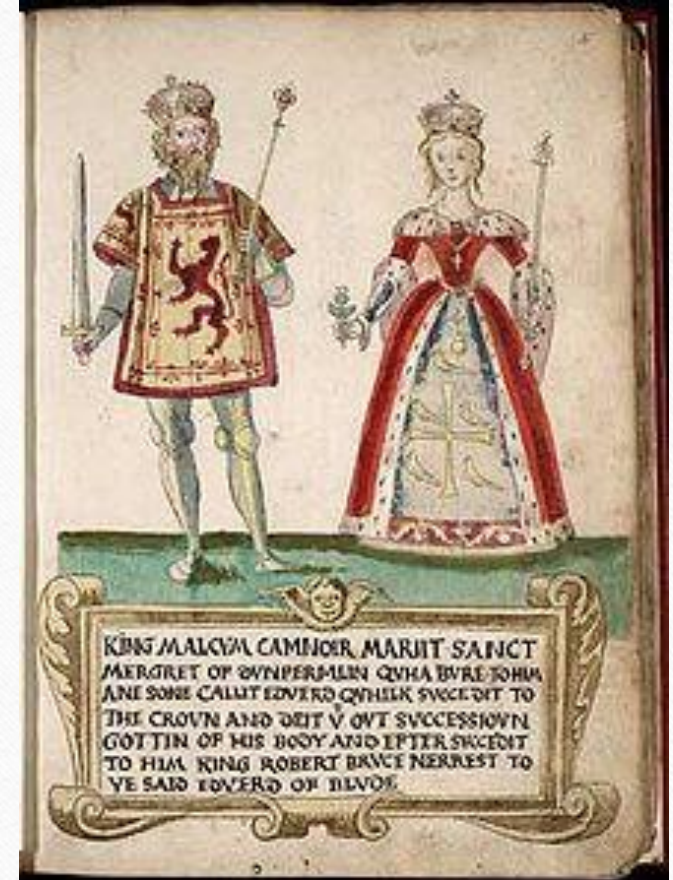 KING MALCVM CAMNOIR MARIIT SANCT
MERGRET OF DVNFERMLIN QVHA BVRE TO HIM
ANE SONE CALLIT EDVERD QVHILK SVCCEDIT TO
THE CROVN AND DEIT V̊ OVT SVCCESSIOVN
GOTTIN OF HIS BODY AND EFTER SVCCEDIT
TO HIM KING ROBERT BRVCE NERREST TO
YE SAID EDVERD OF BLVDE